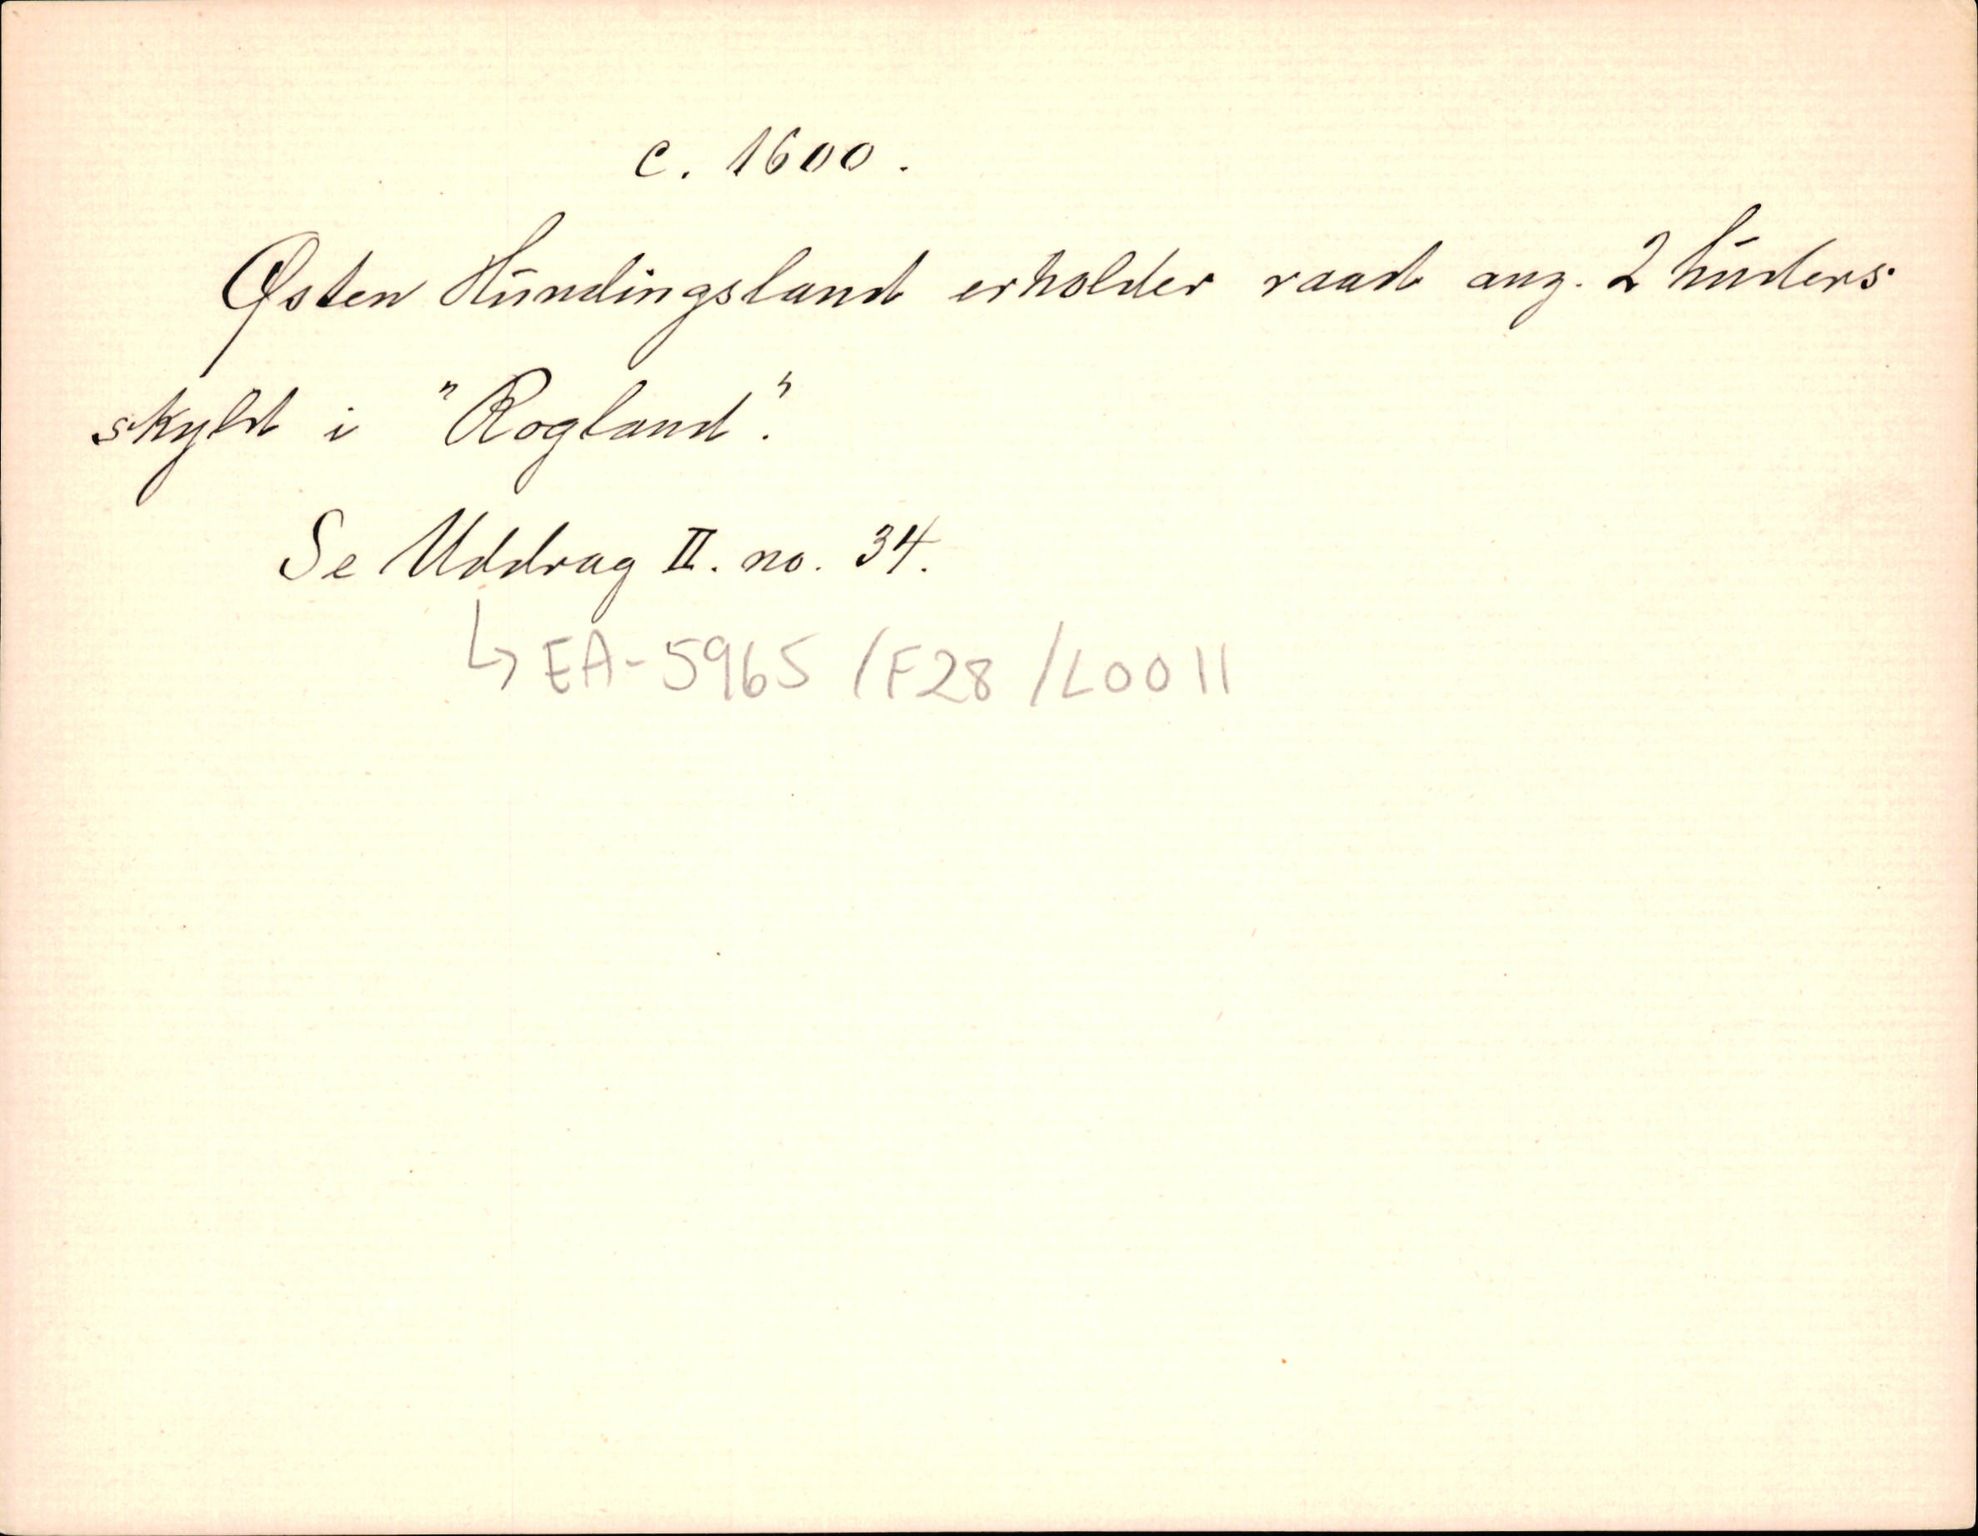 c. 1600.
Østen Hundingsland erholder raad ang. 2 huders
skyld i "Rogland".
Se Uddrag II. no. 34.
↳ EA-5965 /F28 /L0011